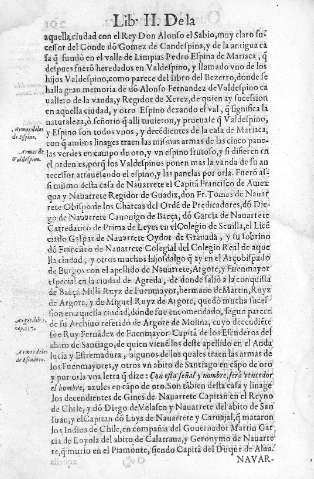 Lib. II. De la
aquella ciudad con el Rey Don Alonso el Sabio, muy claro su-
cessor del Conde dō Gomez de Candespina, y de la antigua ca
sa q̃ fundò en el valle de Limpias Pedro Espina de Mariaca, q̃
despues fuerō heredados en Valdespino, y llamado vno de los
hijos Valdespino, como parece del libro del Bezerro, donde se
halla gran memoria de dō Alonso Fernandez de Valdespino ca
uallero de la vanda, y Regidor de Xerez, de quien ay sucession
en aquella ciudad, y otro Espino dexando el val, q̃ significa la
naturaleza, ò señorio q̃ alli tuuieron, y prueuase q̃ Valdespino,
y Espino son todos vnos, y decēdientes de la casa de Mariaca,
con q̃ ambos linages traen las mismas armas de las cinco pane-
las verdes en campo de oro, y vn espino frutoso, y si differen en
el orden es, porq̃ los Valdespinos ponen mas la vanda de su an
tecessor atrauessando el espino, y las panelas por orla. Fuerō assi
mismo desta casa de Nauarrete el Capitā Francisco de Amez
qua y Nauarrete Regidor de Guadix, don Fr. Tomas de Nauar
rete Obispo de los Charcas del Ordē de Predicadores, dō Die-
go de Nauarrete Canonigo de Baeça, dō Garcia de Nauarrete
Catredatico de Prima de Leyes en el Colegio de Seuilla, el Licē
ciado Gaspar de Nauarrete Oydor de Granada, y su sobrino
dō Francisco de Nauarrete Colegial del Colegio Real de aque
lla ciudad, y otros muchos hijosdalgo q̃ ay en el Arçobispado
de Burgos con el apellido de Nauarrete, Argote, y Fuenmayor
especial en la ciudad de Agreda, de donde saliò a la conquista
de Baeça Miſſi Ruyz de Fuenmayor, hermano de Martin Ruyz
de Argote, y de Miguel Ruyz de Argote, quedò mucha suces-
sion en aquella ciudad, dōnde fue encomendado, segun parece
de su Archiuo referido de Argote de Molina, cuyo decendiēte
fue Ruy Fernādez de Fuenmayor Capitā de los Escuderos del
abito de Santiago, de quien viene los deste apellido en el Anda
luzia y Estremadura, algunos de los quales traen las armas de
los Fuenmayores, y otros vn abito de Santiago en cāpo de oro
y por orla vna letra q̃ dize: Con esta señal y nombre, serà venerado
el hombre, azules en cāpo de oro. Son tābien desta casa y linage
los decendientes de Gines de Nauarrete Capitan en el Reyno
de Chile, y dō Diego de Velasco y Nauarrete del abito de San
tiago, y el Capitan dō Luys de Nauarrete y Caruajal, q̃ mataron
los Indios de Chile, en compañia del Gouernador Martin Gar
cia de Loyola del abito de Calatraua, y Geronymo de Nauarre
te, q̃ murio en el Piamonte, siendo Capitā del Duque de Alua.
NAVAR-